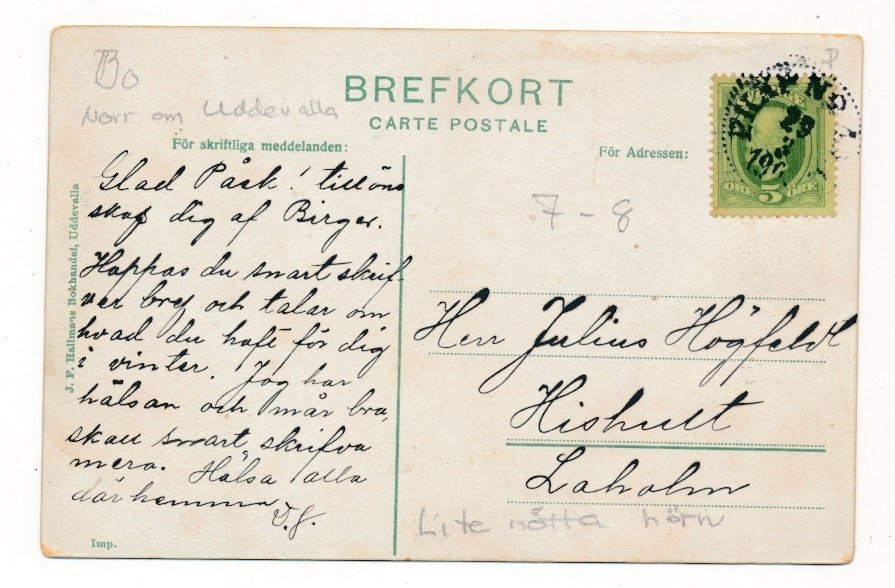 Bo
Norr om Uddevalla
BREFKORT
CARTE POSTALE
För skriftliga meddelanden:
För Adressen:
ÖRE 5 ÖRE
29
7 - 8
Glad Påsk! tillöns
skas dig af Birger.
Hoppas du snart skrif-
ver bref och talar om
hvad du haft för dig
i vinter. Jag har
hälsan och mår bra,
skall snart skrifva
mera. Hälsa alla
där hemma
Herr Julius Högfeldt
Hishult
Laholm
Lite nötta hörn
J. F. Hallmans Bokhandel, Uddevalla
Imp.